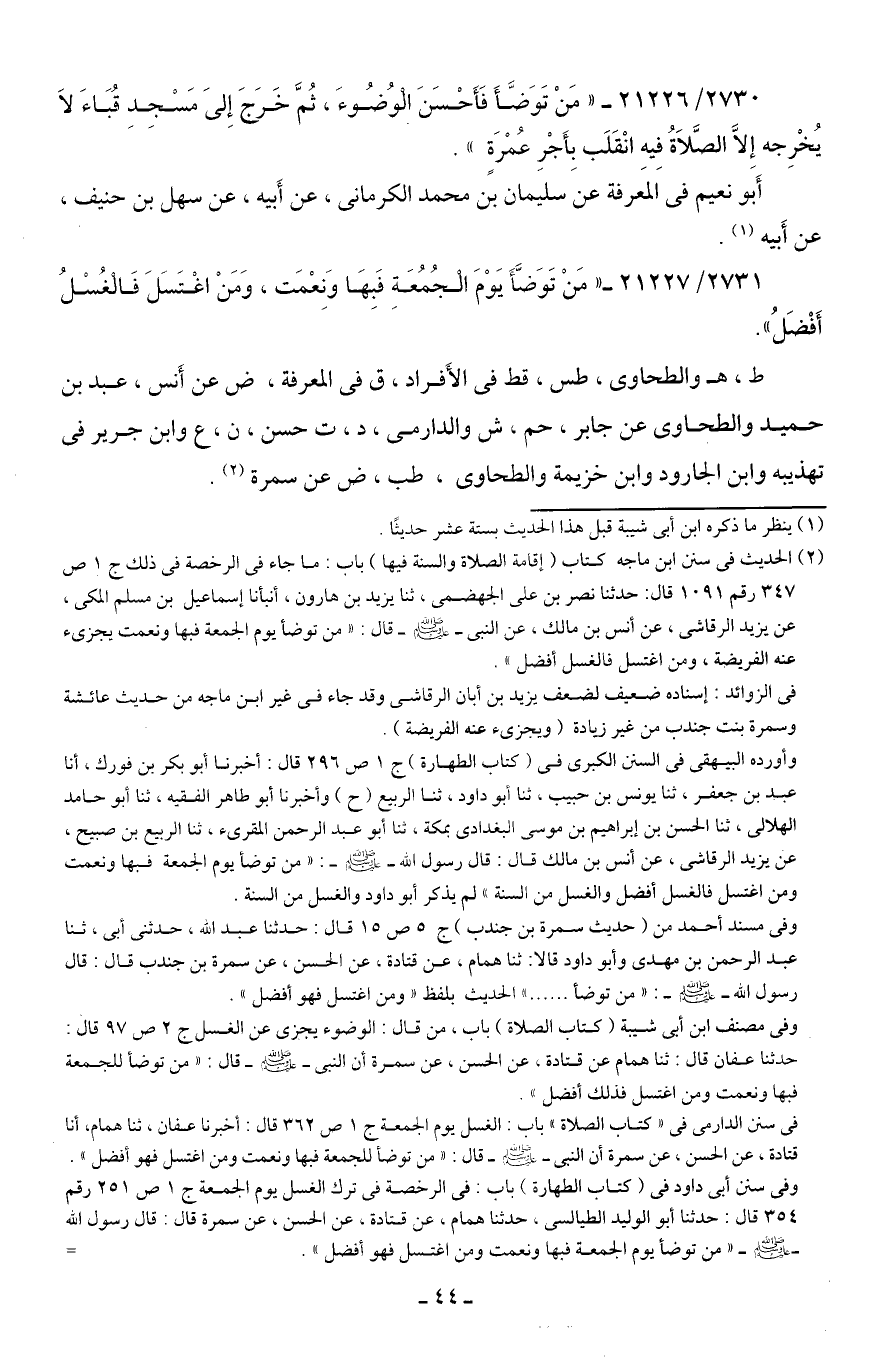 ٢٧٣٠/ ٢١٢٢٦ ـ « مَنْ تَوَضَّأَ فَأَحْسَنَ الْوُضُوءَ ، ثُمَّ خَرَجَ إِلىَ مَسْجِدِ قُبَاءَ لاَ
يُخْرِجه إلاَّ الصَّلاَةُ فِيهِ انْقَلَب بِأَجْرِ عُمْرَةٍ » .
أبو نعيم فى المعرفة عن سليمان بن محمد الكرمانى ، عن أَبيه ، عن سهل بن حنيف ،
عن أَبيه (١) .
٢٧٣١/ ٢١٢٢٧ ـ« مَنْ تَوَضَّأَ يَوْمَ الْجُمُعَةِ فَبِهَا وَنَعْمَت ، وَمَنْ اغْتَسَلَ فَالْغُسْلُ
أَفْضَلُ».
ط ، هـ والطحاوى ، طس ، قط فى الأَفراد ، ق فى المعرفة ، ض عن أَنس ، عبد بن
حميد والطحاوى عن جابر ، حم ، ش والدارمى ، د ، ت حسن ، ن ، ع وابن جرير فى
تهذيبه وابن الجارود وابن خزيمة والطحاوى ، طب ، ض عن سمرة (٢) .
(١) ينظر ما ذكره ابن أبى شيبة قبل هذا الحديث بستة عشر حديثًا .
(٢) الحديث فى سنن ابن ماجه كتاب ( إقامة الصلاة والسنة فيها ) باب : ما جاء فى الرخصة فى ذلك ج ١ ص
٣٤٧ رقم ١٠٩١ قال: حدثنا نصر بن على الجهضمى ، ثنا يزيد بن هارون ، أنبأنا إسماعيل بن مسلم المكى ،
عن يزيد الرقاشى ، عن أنس بن مالك ، عن النبى ـ ﷺ ـ قال : « من توضأ يوم الجمعة فبها ونعمت يجزىء
عنه الفريضة ، ومن اغتسل فالغسل أفضل » .
فى الزوائد : إسناده ضعيف لضعف يزيد بن أبان الرقاشى وقد جاء فى غير ابن ماجه من حديث عائشة
وسمرة بنت جندب من غير زيادة ( ويجزىء عنه الفريضة ) .
وأورده البيهقى فى السنن الكبرى فى ( كتاب الطهارة ) ج ١ ص ٢٩٦ قال : أخبرنا أبو بكر بن فورك ، أنا
عبد بن جعفر ، ثنا يونس بن حبيب ، ثنا أبو داود ، ثنا الربيع ( ح ) وأخبرنا أبو طاهر الفقيه ، ثنا أبو حامد
الهلالى ، ثنا الحسن بن إبراهيم بن موسى البغدادى بمكة ، ثنا أبو عبد الرحمن المقرىء ، ثنا الربيع بن صبيح ،
عن يزيد الرقاشى ، عن أنس بن مالك قال : قال رسول الله ـ ﷺ ـ : « من توضأ يوم الجمعة فبها ونعمت
ومن اغتسل فالغسل أفضل والغسل من السنة » لم يذكر أبو داود والغسل من السنة .
وفى مسند أحمد من ( حديث سمرة بن جندب ) ج ٥ ص ١٥ قال : حدثنا عبد الله ، حدثنى أبى ، ثنا
عبد الرحمن بن مهدى وأبو داود قالا: ثنا همام ، عن قتادة ، عن الحسن ، عن سمرة بن جندب قال : قال
رسول الله ـ ﷺ ـ : « من توضأ ......» الحديث بلفظ « ومن اغتسل فهو أفضل » .
وفى مصنف ابن أبى شيبة ( كتاب الصلاة ) باب ، من قال : الوضوء يجزى عن الغسل ج ٢ ص ٩٧ قال :
حدثنا عفان قال : ثنا همام عن قتادة ، عن الحسن ، عن سمرة أن النبى ـ ﷺ ـ قال : « من توضأ للجمعة
فبها ونعمت ومن اغتسل فذلك أفضل » .
فى سنن الدارمى فى « كتاب الصلاة » باب : الغسل يوم الجمعة ج ١ ص ٣٦٢ قال : أخبرنا عفان ، ثنا همام، أنا
قتادة ، عن الحسن ، عن سمرة أن النبى ـ ﷺ ـ قال : « من توضأ للجمعة فبها ونعمت ومن اغتسل فهو أفضل » .
وفى سنن أبى داود فى ( كتاب الطهارة ) باب : فى الرخصة فى ترك الغسل يوم الجمعة ج ١ ص ٢٥١ رقم
٣٥٤ قال : حدثنا أبو الوليد الطيالسى ، حدثنا همام ، عن قتادة ، عن الحسن ، عن سمرة قال : قال رسول الله
ـ ﷺ ـ « من توضأ يوم الجمعة فبها ونعمت ومن اغتسل فهو أفضل » . =
ـ ٤٤ ـ